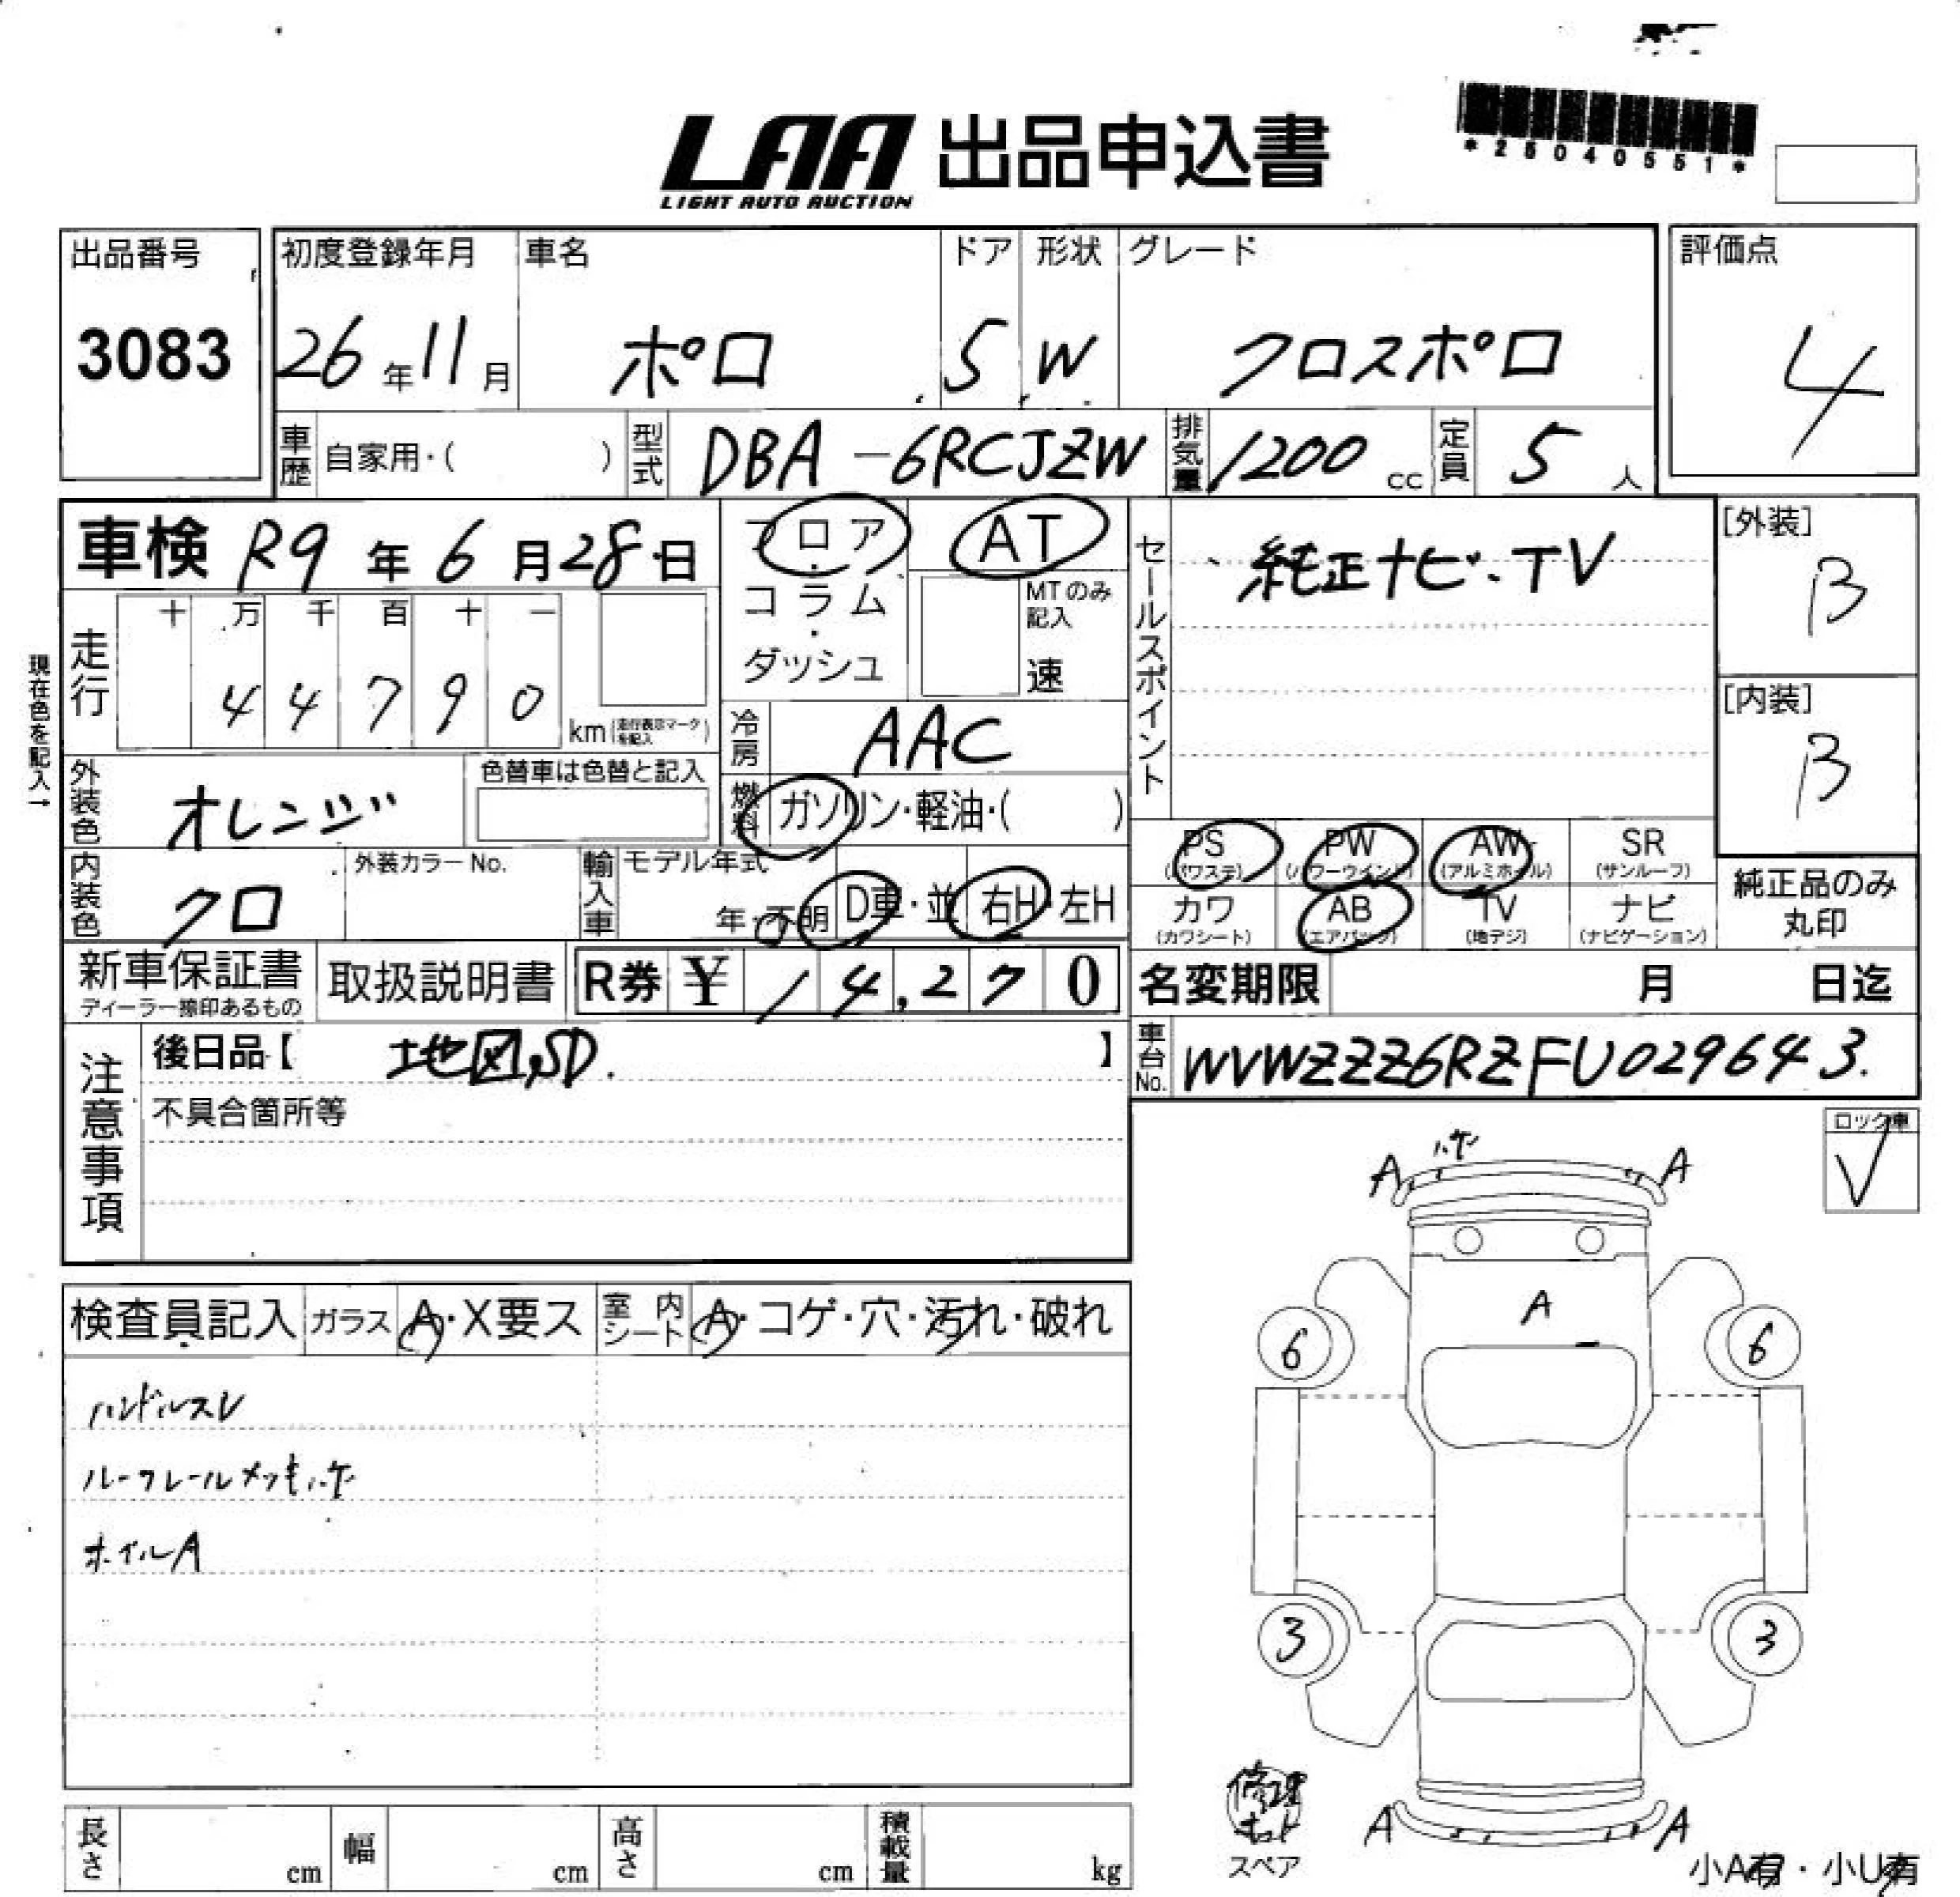 LAA 出品申込書
LIGHT AUTO AUCTION
*25040551*
出品番号
3083
初度登録年月
26年11月
車名
ポロ
ドア
5
形状
W
グレード
クロスポロ
評価点
4
車歴 自家用・( )
型式 DBA-6RCJZW
排気量 1200 cc
定員 5 人
車検 R9年6月28日
フロア・コラム・ダッシュ
AT
MTのみ記入
速
セールスポイント
純正ナビ・TV
[外装]
B
[内装]
B
現在色を記入→
走行
十 万 千 百 十 一
4 4 7 9 0
km(走行表示マークを記入)
冷房 AAC
外装色 オレンジ
色替車は色替と記入
燃料 ガソリン・軽油・( )
PS (パワステ)
PW (パワーウインド)
AW (アルミホイル)
SR (サンルーフ)
内装色 クロ
外装カラーNo.
輸入車
モデル年式
年・不明
D車・並
右H・左H
カワ (カワシート)
AB (エアバッグ)
TV (地デジ)
ナビ (ナビゲーション)
純正品のみ丸印
新車保証書
ディーラー捺印あるもの
取扱説明書
R券 ¥ 14,270
名変期限 月 日迄
注意事項
後日品【 地図,SD. 】
車台No. WVWZZZ6RZFU029643.
不具合箇所等
ロック車
✓
検査員記入
ガラス A・X要ス
室内シート A・コゲ・穴・汚れ・破れ
ハンドルスレ
ルーフレールメッキハゲ
ホイルA
A ハゲ A
A
6 6
3 3
A A
修理キット
スペア
小A有・小U有
長さ cm
幅 cm
高さ cm
積載量 kg